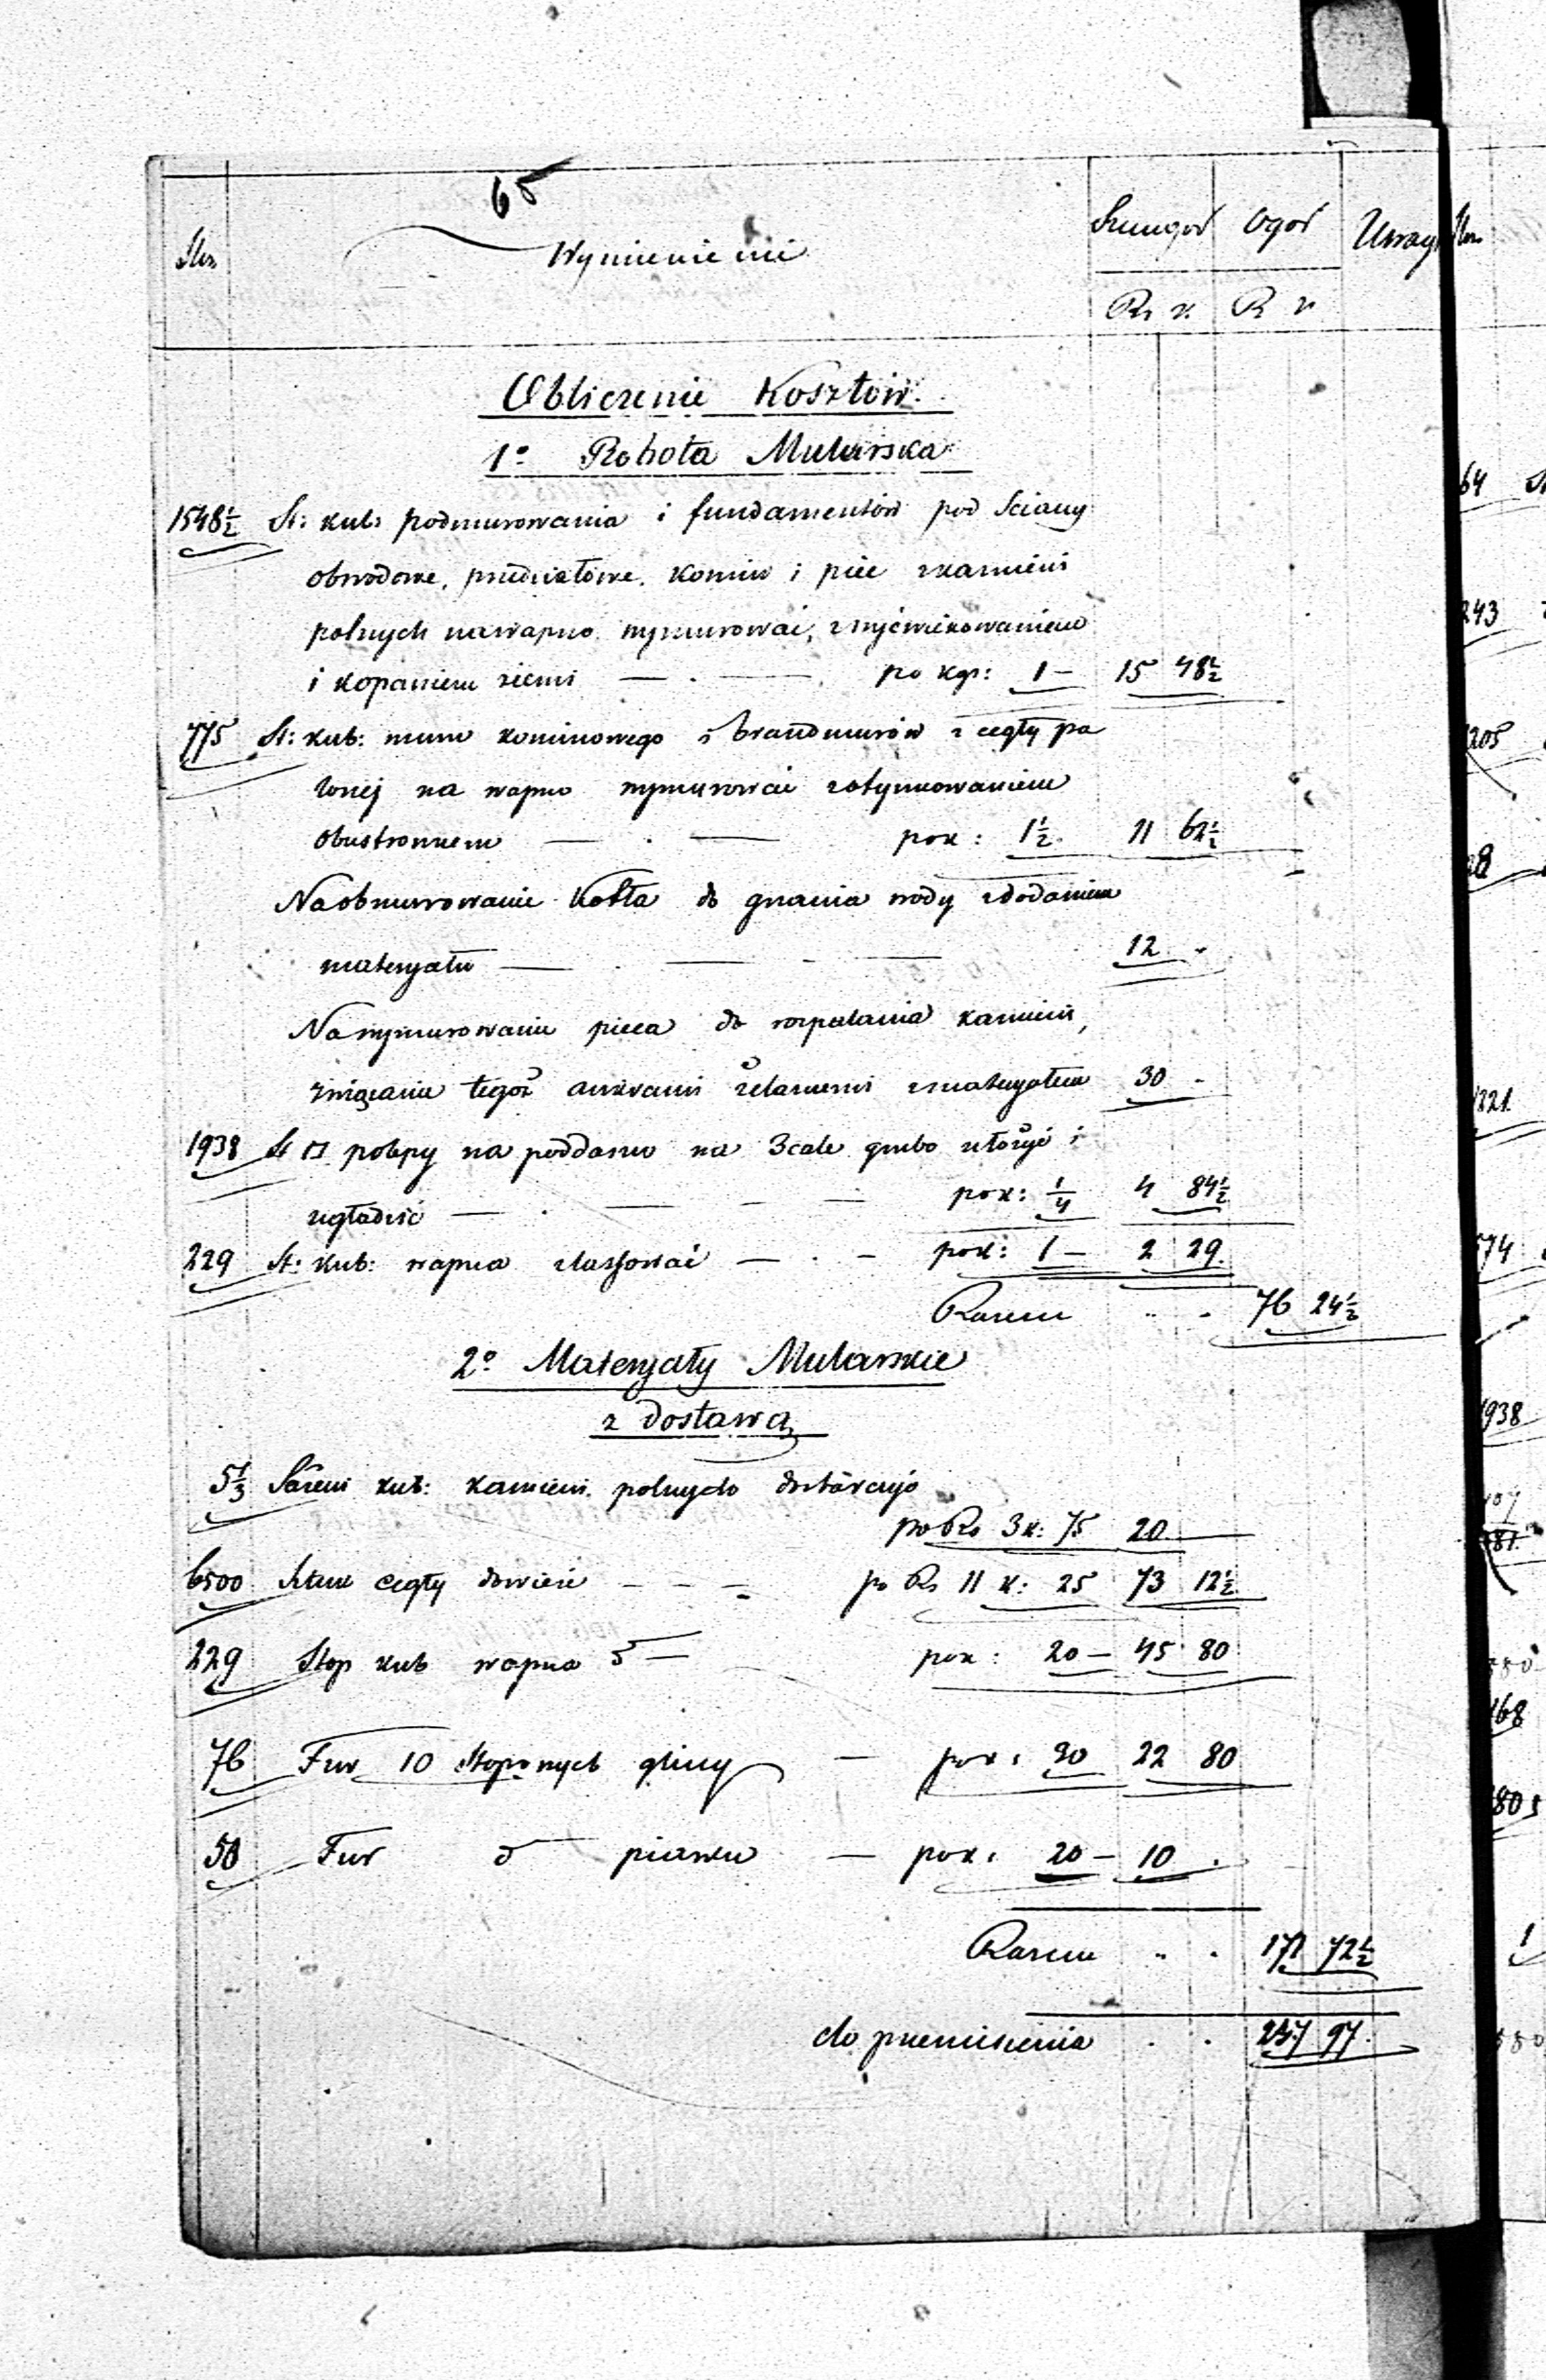 65
Nro Wymienienie Szczegół Ogół Uwag
Rs k. R k
Obliczenie Kosztów.
1º Robota Mularska
1548½ St: kub: podmurowania i fundamentów pod Sciany
obwodowe, przedziałowe, komin i piec z kamieni
polnych na wapno wymurować, z wyćwikowaniem
i kopaniem ziemi — . — po kop: 1 — 15 48½
775 St: kub: muru kominowego i brandmurów z cegły pa
lonej na wapno wymurować z otynkowaniem
obustronnem — . — po k: 1½ 11 62½
Na obmurowanie kotła do grzania wody z dodaniem
materyału — . — - — 12 -
Na wymurowanie pieca do rozpalania kamieni,
związanie tegoż ankrami żelaznemi z materyałem 30 -
1938 St □ polepy na poddaszu na 3 cale grubo ułożyć i
wgładzić — . — — — po k: ¼ 4 84½
229 St: kub: wapna zlassować — . — po k: 1 — 2 29.
Razem .. . 76 24½
2º Materyały Mularskie
z dostawą
5⅓ Sążeni kub: kamieni polnych
po Rs 3 k: 75 20 —
6500 Sztuk cegły dowieść — — — po Rs 11 k: 25 73 12½
229 Stop kub wapna d — po k: 20 — 45 80
76 Fur 10 stopowych gliny — po k: 30 22 80
50 Fur d piasku — po k: 20 — 10 .
Razem .. . 171 72½
do przeniesienia . . 247 97.